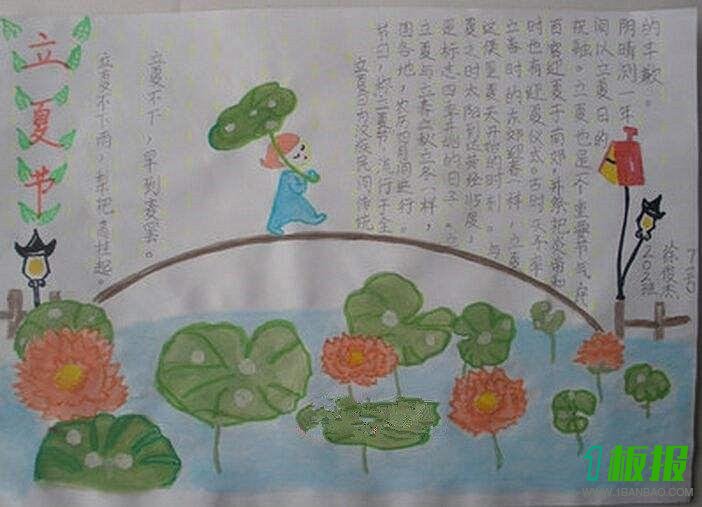 立夏节
立夏不下雨，犁把高挂起。
立夏不下，旱到麦罢。
立夏日为汉族民间传统
节日，称立夏节，流行于全
国各地，农历四月间进行。
立夏与立春立秋立冬一样，
是标志四季开始的日子。立
夏之时太阳到达经度，
这便是夏天开始的时刻。与
立春时的东郊迎春一样，立夏
时也有迎夏仪式。古时天子率
百官迎夏于南郊，并祭祀炎帝和
祝融。立夏也是一个重要节气，民
间以立夏日的
阴晴测一年
的丰歉。
202班
徐俊杰
1板报
WWW.1BANBAO.COM